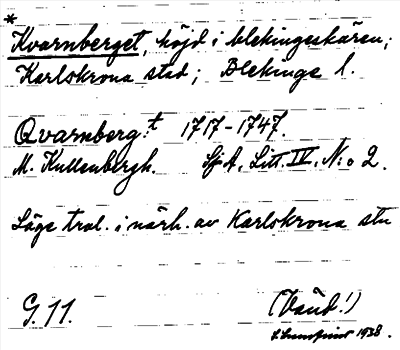 *
Kvarnberget, höjd i blekingeskären;
Karlskrona stad; Blekinge l.
Qvarnberg:t 1717-1747.
M. Kullenbergh. Sj A, Litt. IV. N:o 2.
Låge trol. i närh. av Karlskrona stn
G. 11.
1938.